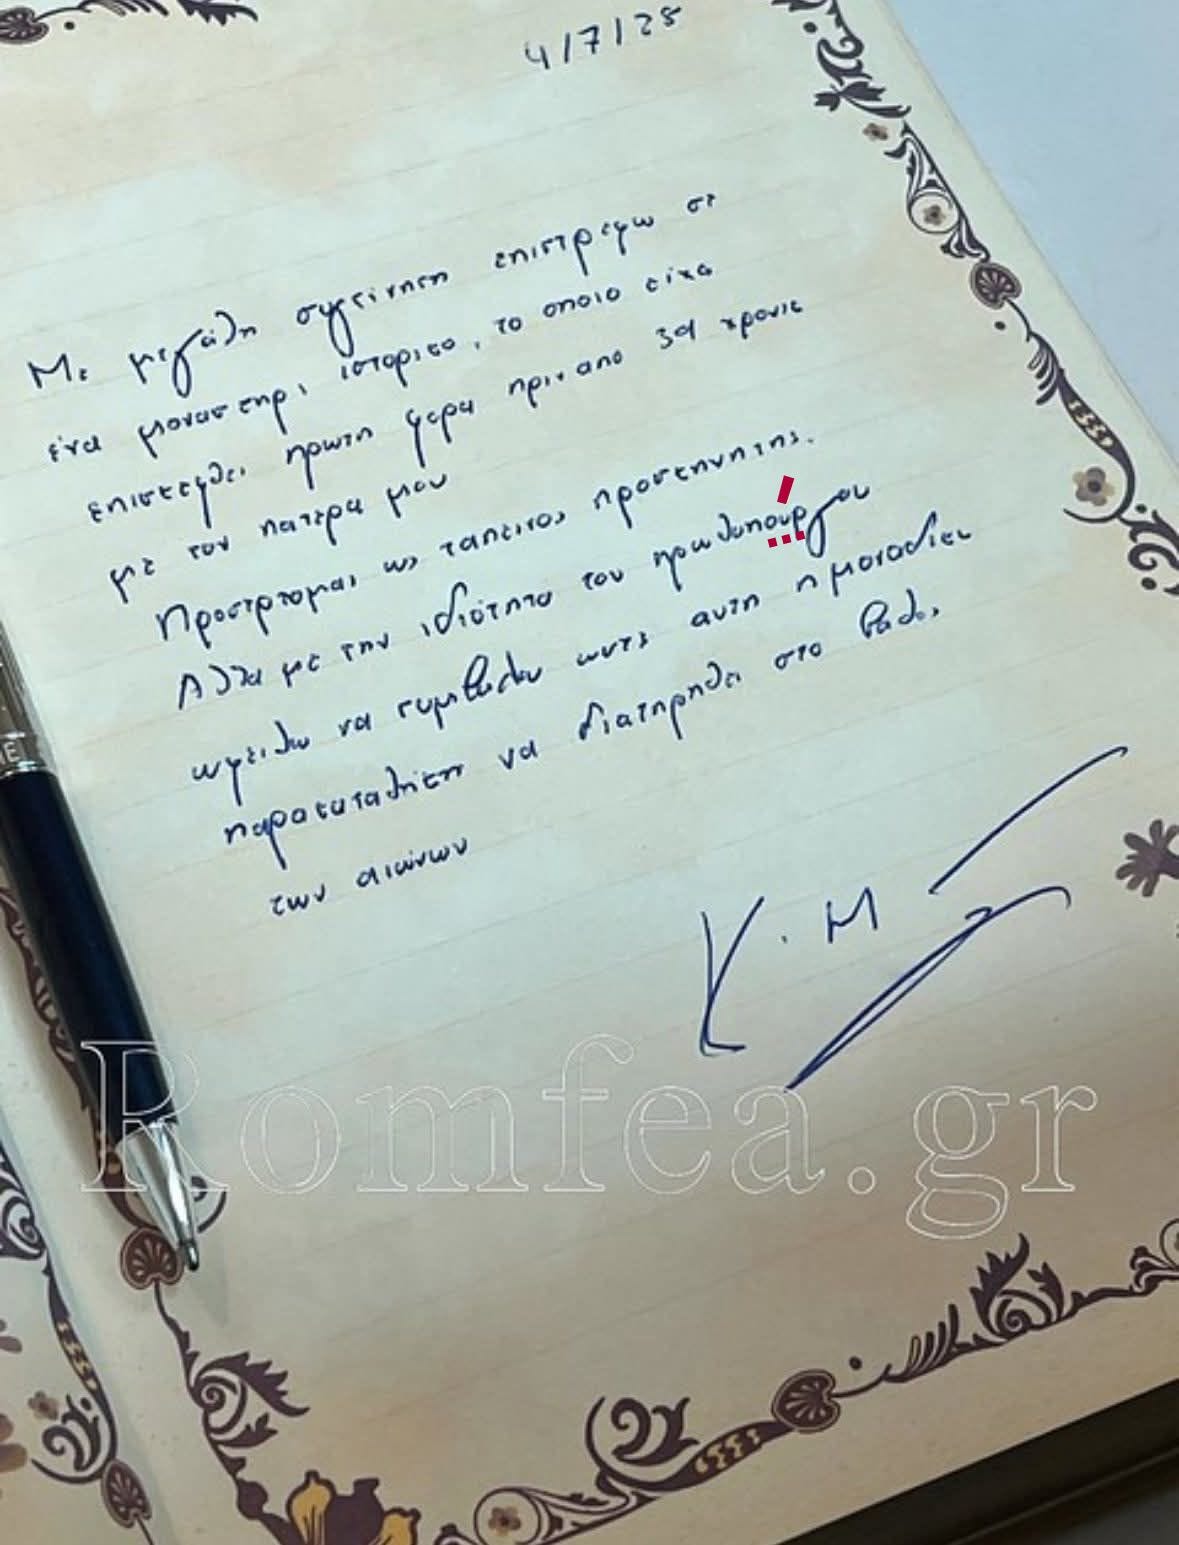 4/7/25
Με μεγάλη συγκίνηση επιστρεφω σε
ένα μοναστηρι ιστορικο, το οποιο ειχα
επισκεφθει πρωτη φορα πριν απο 39 χρονια
με τον πατερα μου
Προσερχομαι ως ταπεινος προσκυνητης.
Αλλα με την ιδιότητα του πρωθυπούργου
οφειλω να συμβαλω ωστε αυτη η μοναδικη
παρακαταθηκη να διατηρηθει στο βαθος
των αιώνων
Κ. Μ
Romfea.gr